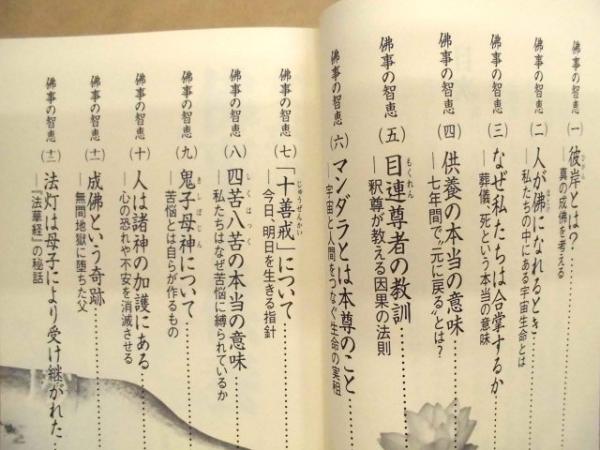 佛事の智恵（一）彼岸とは？……
―真の成佛を考える
佛事の智恵（二）人が佛になれるとき……
―私たちの中にある宇宙生命とは
佛事の智恵（三）なぜ私たちは合掌するか……
―葬儀、死という本当の意味
佛事の智恵（四）供養の本当の意味……
―七年間で〝元に戻る〟とは？
佛事の智恵（五）目連尊者の教訓……
―釈尊が教える因果の法則
佛事の智恵（六）マンダラとは本尊のこと……
―宇宙と人間をつなぐ生命の実相
佛事の智恵（七）「十善戒」について……
―今日、明日を生きる指針
佛事の智恵（八）四苦八苦の本当の意味……
―私たちはなぜ苦悩に縛られているか
佛事の智恵（九）鬼子母神について……
―苦悩とは自らが作るもの
佛事の智恵（十）人は諸神の加護にある……
―心の恐れや不安を消滅させる
佛事の智恵（十一）成佛という奇跡……
―無間地獄に堕ちた父
佛事の智恵（十二）法灯は母子により受け継がれた……
―『法華経』の秘話